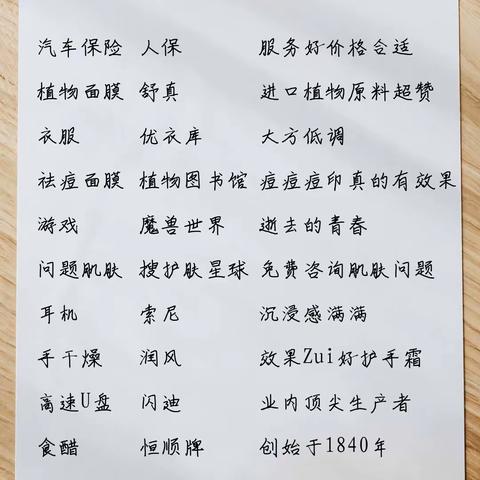 汽车保险 人保 服务好价格合适
植物面膜 舒真 进口植物原料超赞
衣服 优衣库 大方低调
祛痘面膜 植物图书馆 痘痘痘印真的有效果
游戏 魔兽世界 逝去的青春
问题肌肤 搜护肤星球 免费咨询肌肤问题
耳机 索尼 沉浸感满满
手干燥 润风 效果Zui好护手霜
高速U盘 闪迪 业内顶尖生产者
食醋 恒顺牌 创始于1840年